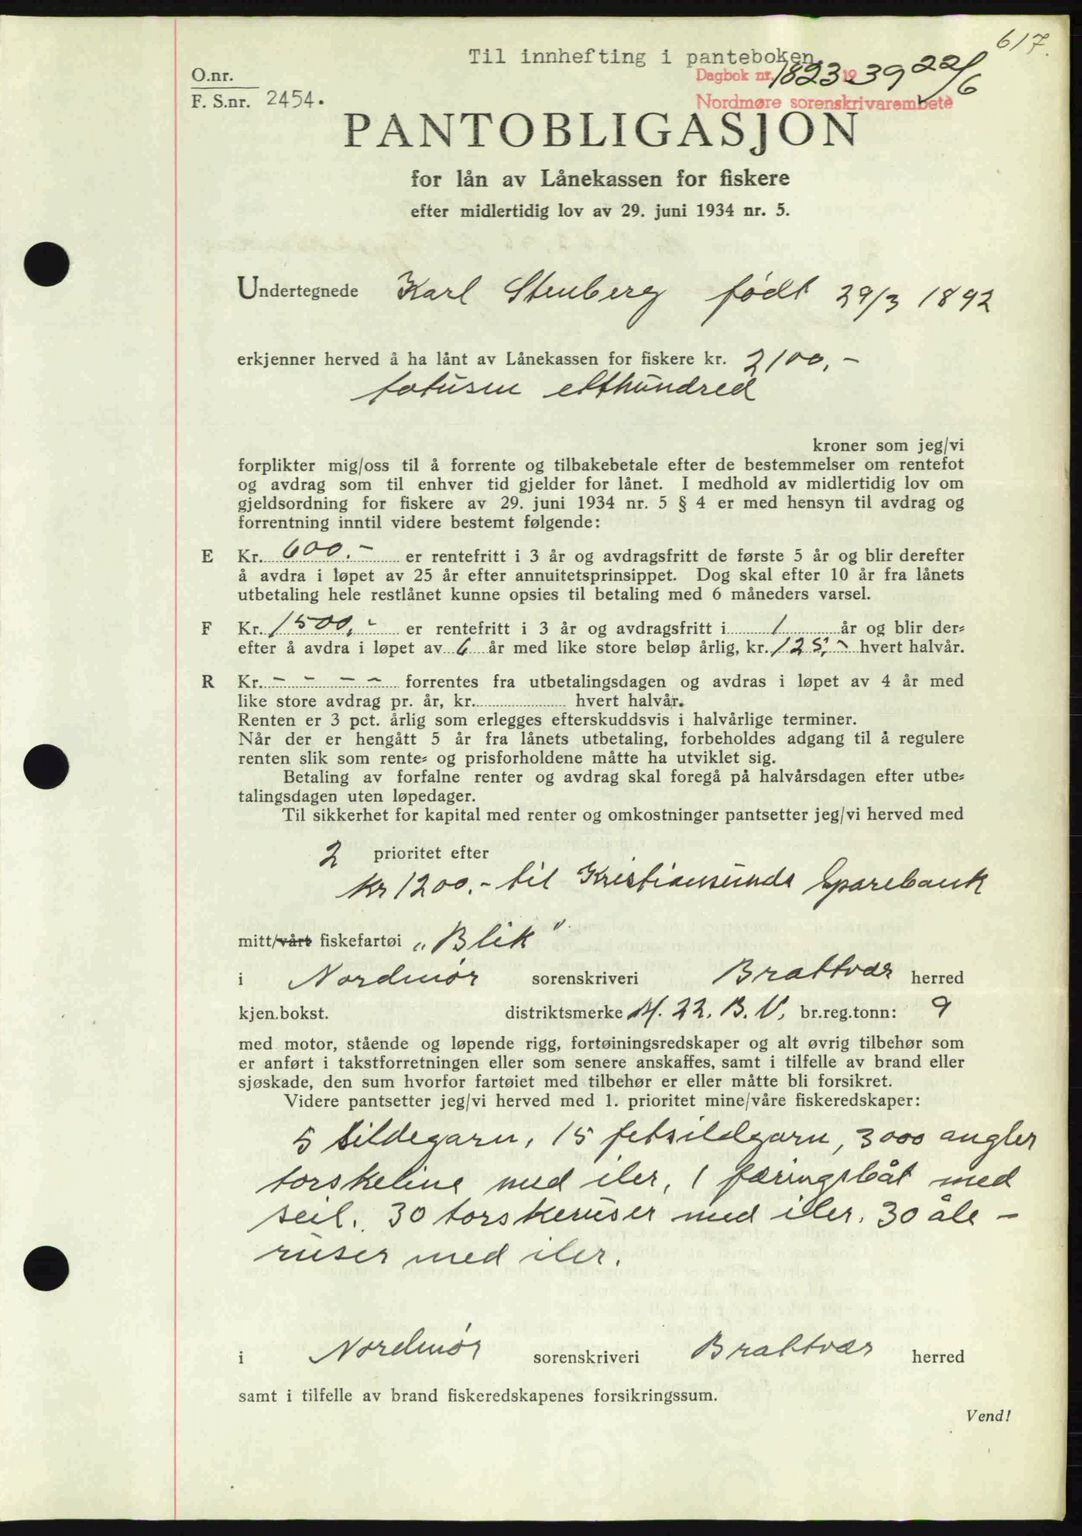 617.
Til innhefting i panteboken.
Dagbok nr. 1823 1939 22/6
Nordmøre sorenskrivarembete
O.nr.
F. S.nr. 2454.
PANTOBLIGASJON
for lån av Lånekassen for fiskere
efter midlertidig lov av 29. juni 1934 nr. 5.
Undertegnede Karl Stenberg født 29/3 1892
erkjenner herved å ha lånt av Lånekassen for fiskere kr. 2100,-
totusen etthundred
kroner som jeg/vi
forplikter mig/oss til å forrente og tilbakebetale efter de bestemmelser om rentefot
og avdrag som til enhver tid gjelder for lånet. I medhold av midlertidig lov om
gjeldsordning for fiskere av 29. juni 1934 nr. 5 § 4 er med hensyn til avdrag og
forrentning inntil videre bestemt følgende:
E Kr. 600.- er rentefritt i 3 år og avdragsfritt de første 5 år og blir derefter
å avdra i løpet av 25 år efter annuitetsprinsippet. Dog skal efter 10 år fra lånets
utbetaling hele restlånet kunne opsies til betaling med 6 måneders varsel.
F Kr. 1500,- er rentefritt i 3 år og avdragsfritt i 1 år og blir der=
efter å avdra i løpet av 6 år med like store beløp årlig, kr. 125,- hvert halvår.
R Kr. - - - - forrentes fra utbetalingsdagen og avdras i løpet av 4 år med
like store avdrag pr. år, kr. hvert halvår.
Renten er 3 pct. årlig som erlegges efterskuddsvis i halvårlige terminer.
Når der er hengått 5 år fra lånets utbetaling, forbeholdes adgang til å regulere
renten slik som rente= og prisforholdene måtte ha utviklet sig.
Betaling av forfalne renter og avdrag skal foregå på halvårsdagen efter utbe=
talingsdagen uten løpedager.
Til sikkerhet for kapital med renter og omkostninger pantsetter jeg/vi herved med
2 prioritet efter
kr 1200.- til Kristiansunds Sparebank
mitt/vårt fiskefartøi „Blik"
i Nordmør sorenskriveri Brattvær herred
kjen.bokst. distriktsmerke M. 22. B. V. br.reg.tonn: 9
med motor, stående og løpende rigg, fortøiningsredskaper og alt øvrig tilbehør som
er anført i takstforretningen eller som senere anskaffes, samt i tilfelle av brand eller
sjøskade, den sum hvorfor fartøiet med tilbehør er eller måtte bli forsikret.
Videre pantsetter jeg/vi herved med 1. prioritet mine/våre fiskeredskaper:
5 sildegarn, 15 fetsildgarn, 3000 angler
torskeline med iler, 1 færingsbåt med
seil. 30 torskeruser med iler. 30 åle-
ruser med iler.
i Nordmør sorenskriveri Brattvær herred
samt i tilfelle av brand fiskeredskapenes forsikringssum.
Vend!